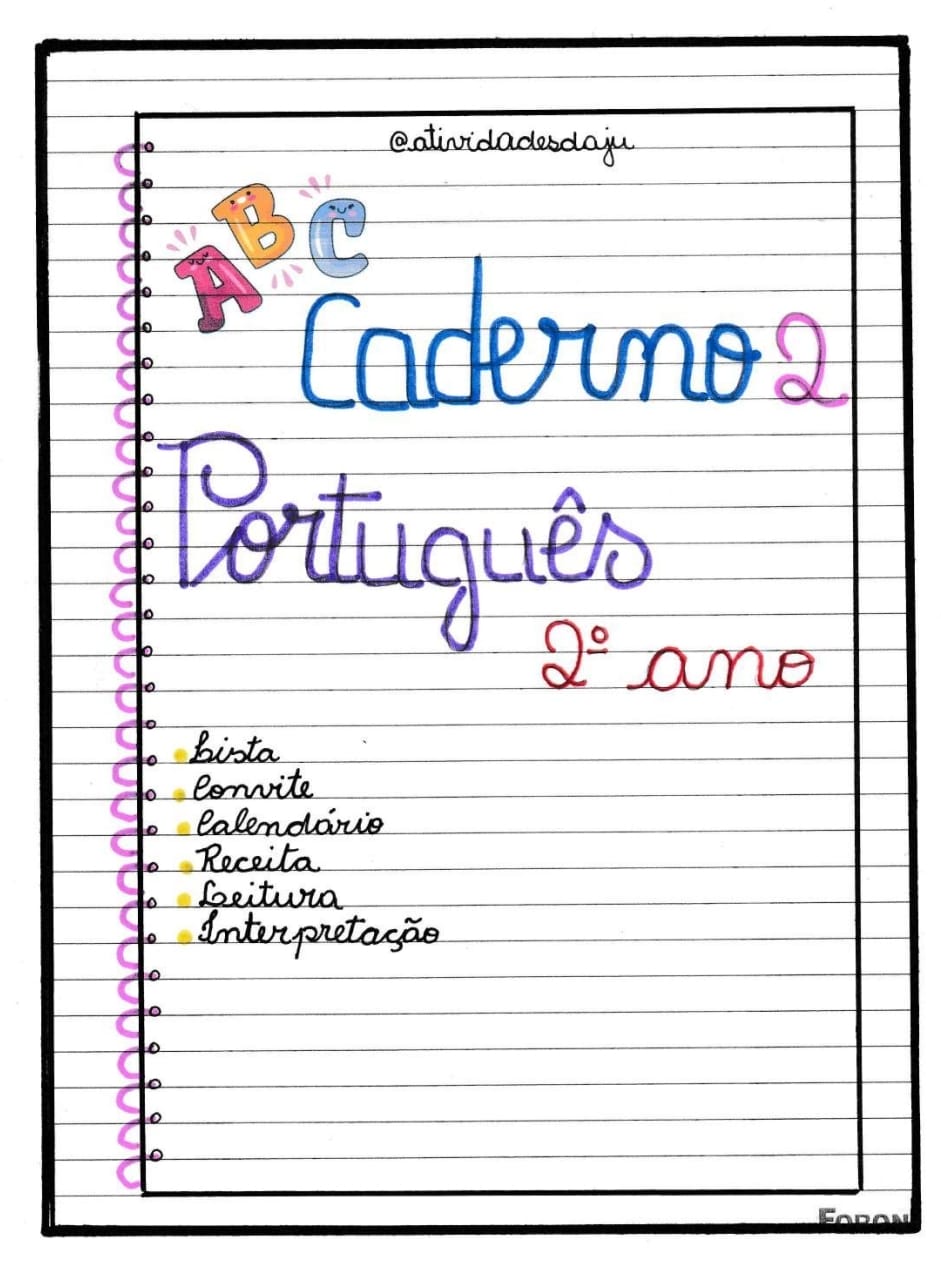 @atividadesdaju
ABC
Caderno 2
Português
2º ano
Lista
Convite
Calendário
Receita
Leitura
Interpretação
FORON